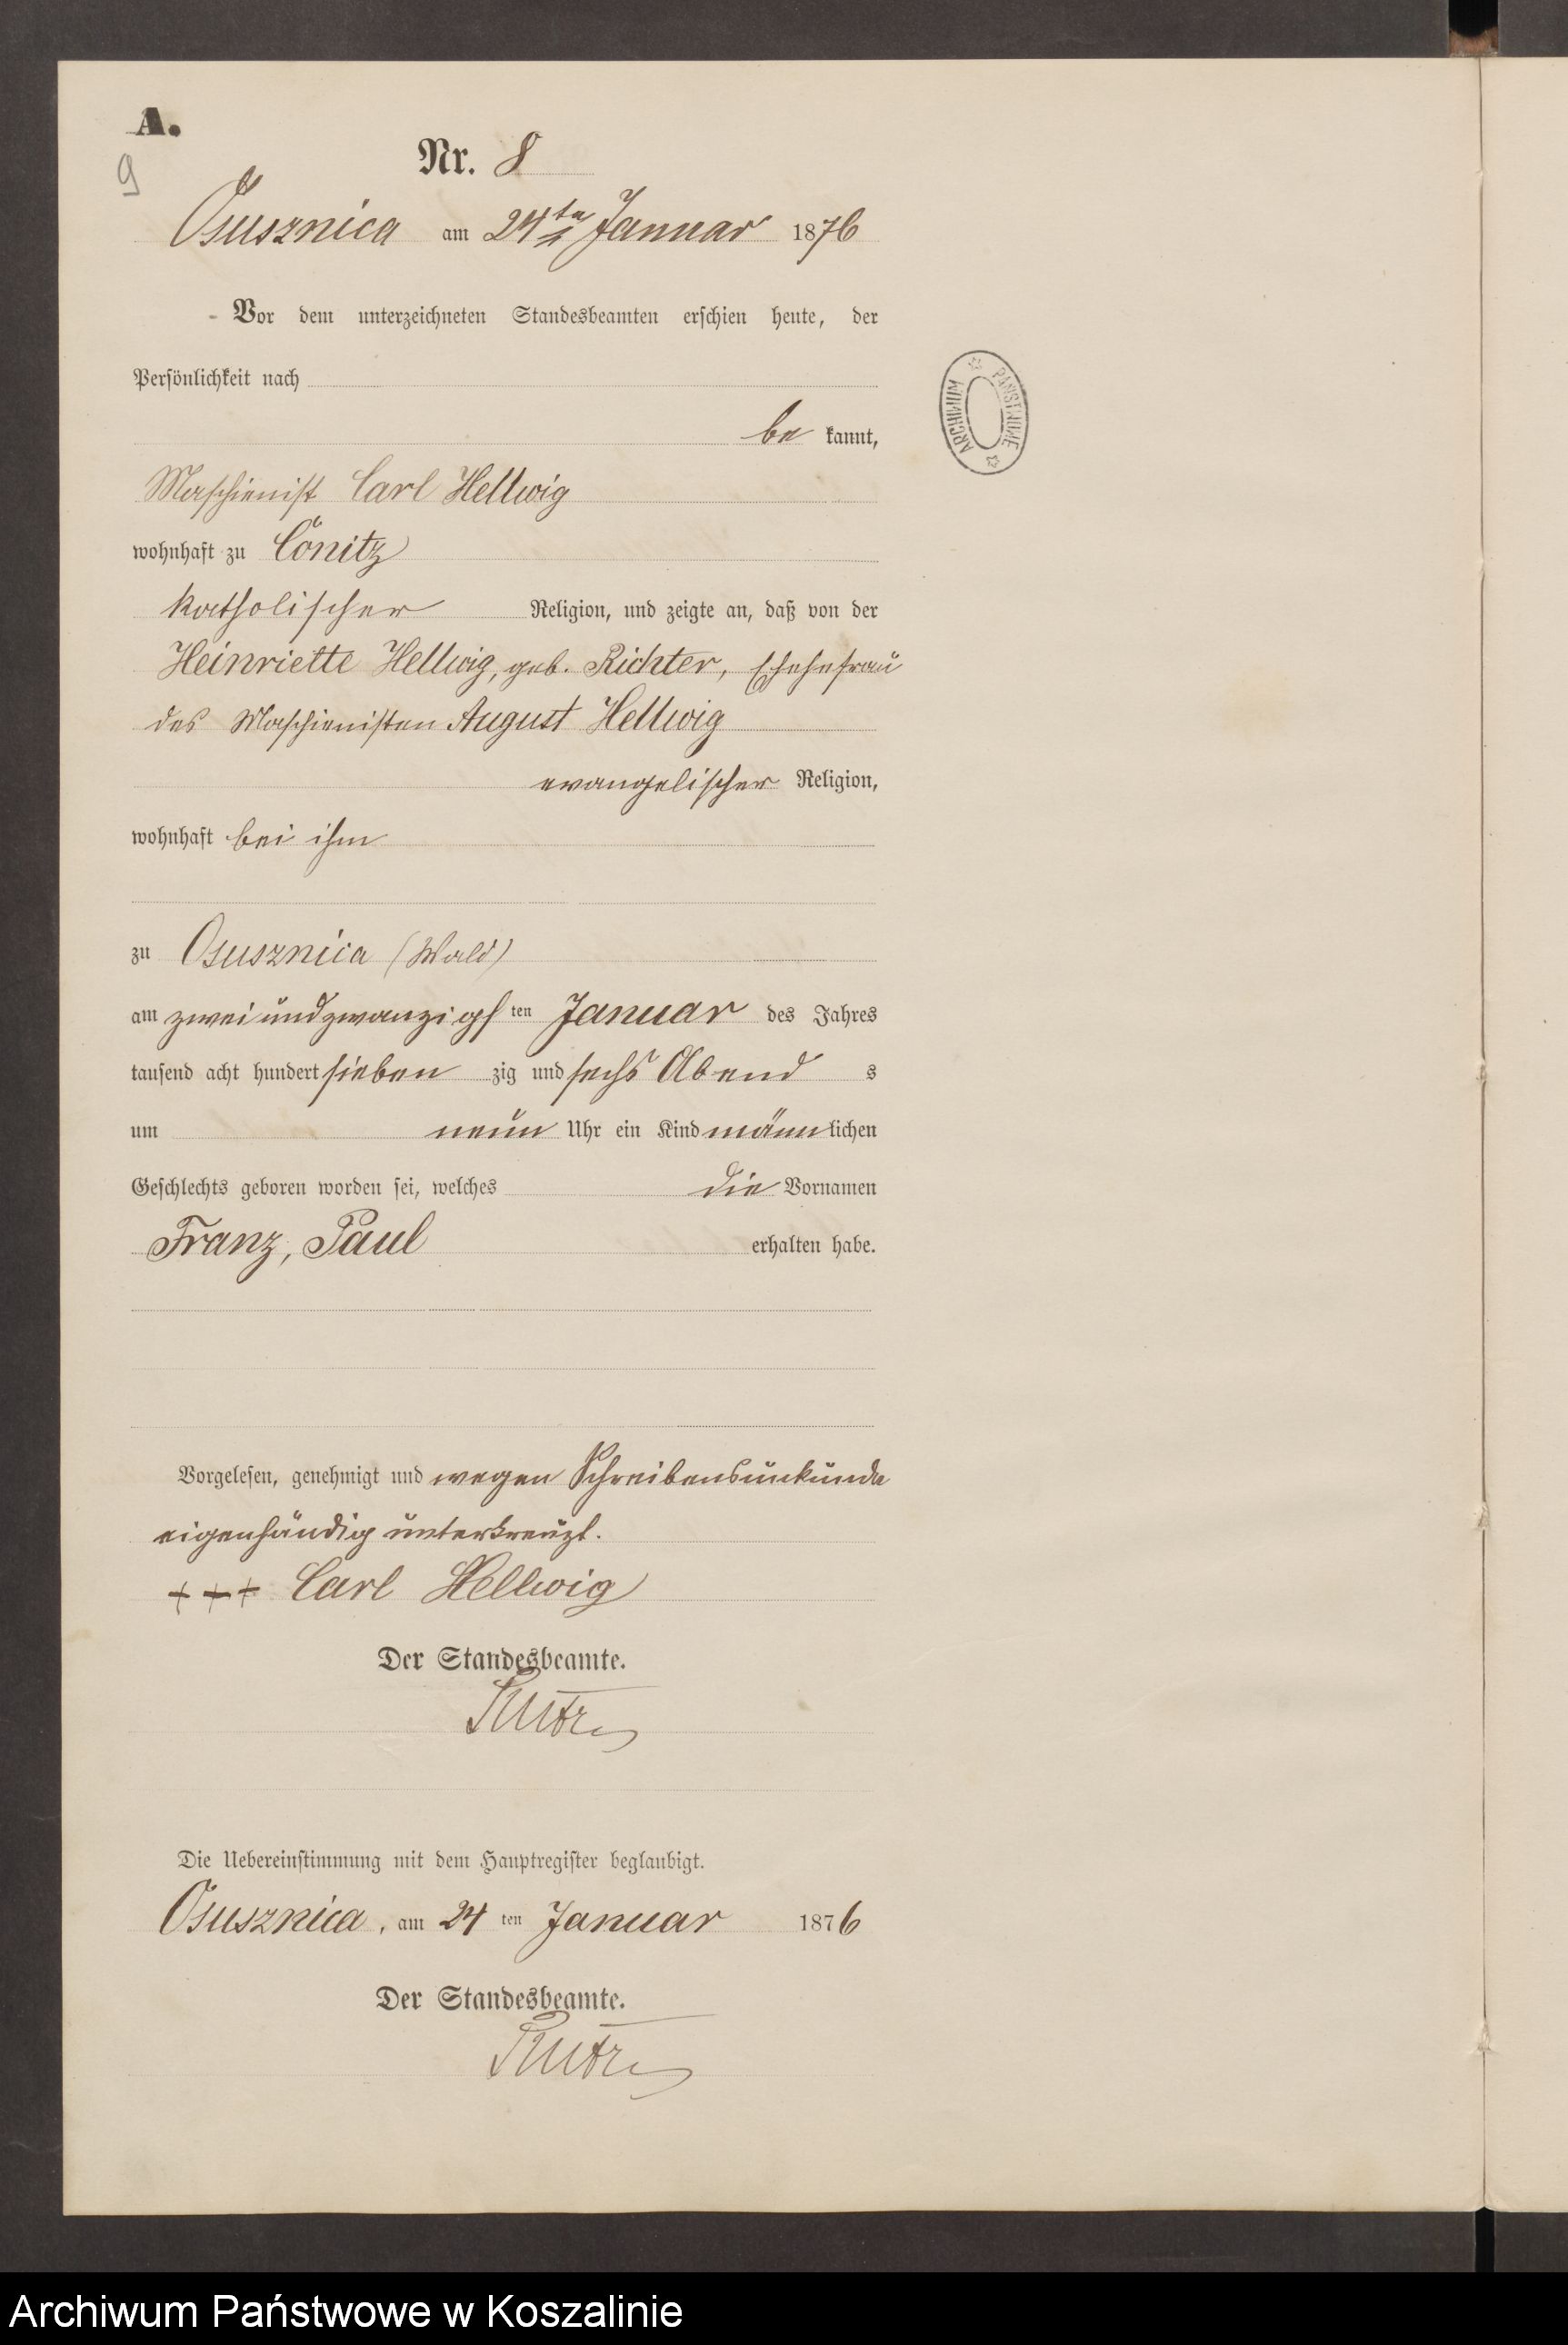 A.
9
Nr. 8
Osusznica am 24ten Januar 1876
Vor dem unterzeichneten Standesbeamten erschien heute, der
Persönlichkeit nach
be kannt,
Maschienist Carl Hellwig
wohnhaft zu Cönitz
katholischer Religion, und zeigte an, daß von der
Heinriette Hellwig, geb. Richter, Ehehefrau
des Maschienisten August Hellwig
evangelischer Religion,
wohnhaft bei ihm
zu Osusznica (Wald)
am zweiundzwanzigs ten Januar des Jahres
tausend acht hundert sieben zig und sechs Abend s
um neun Uhr ein Kind männ lichen
Geschlechts geboren worden sei, welches die Vornamen
Franz, Paul erhalten habe.
Vorgelesen, genehmigt und wegen Schreibensunkunde
eigenhändig unterkreuzt.
+++ Carl Hellwig
Der Standesbeamte.
Die Uebereinstimmung mit dem Hauptregister beglaubigt.
Osusznica, am 24 ten Januar 1876
Der Standesbeamte.
ARCHIWUM PAŃSTWOWE
Archiwum Państwowe w Koszalinie